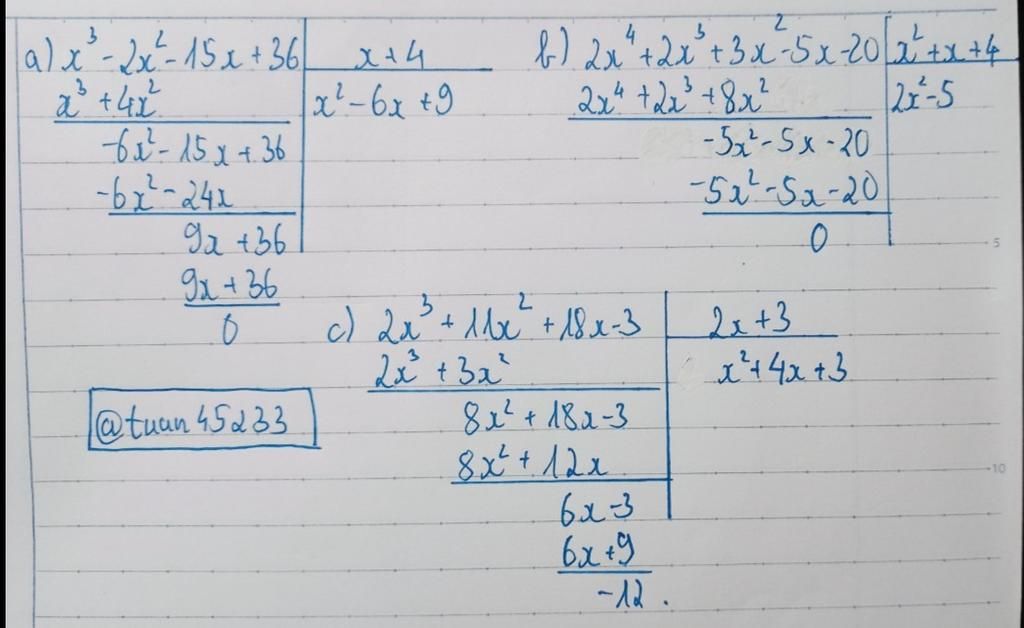 a) x³ - 2x² - 15x + 36 | x + 4
x³ + 4x² | x² - 6x + 9
-6x² - 15x + 36
-6x² - 24x
9x + 36
9x + 36
0
b) 2x⁴ + 2x³ + 3x² - 5x - 20 | x² + x + 4
2x⁴ + 2x³ + 8x² | 2x² - 5
-5x² - 5x - 20
-5x² - 5x - 20
0
c) 2x³ + 11x² + 18x - 3 | 2x + 3
2x³ + 3x² | x² + 4x + 3
8x² + 18x - 3
8x² + 12x
6x - 3
6x + 9
-12.
@tuan45233
5
10